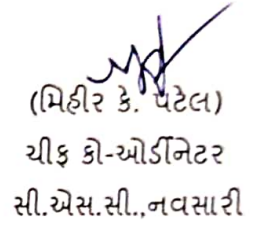 (મિહીર કે. પટેલ)
ચીફ કો-ઓર્ડીનેટર
સી.એસ.સી.,નવસારી